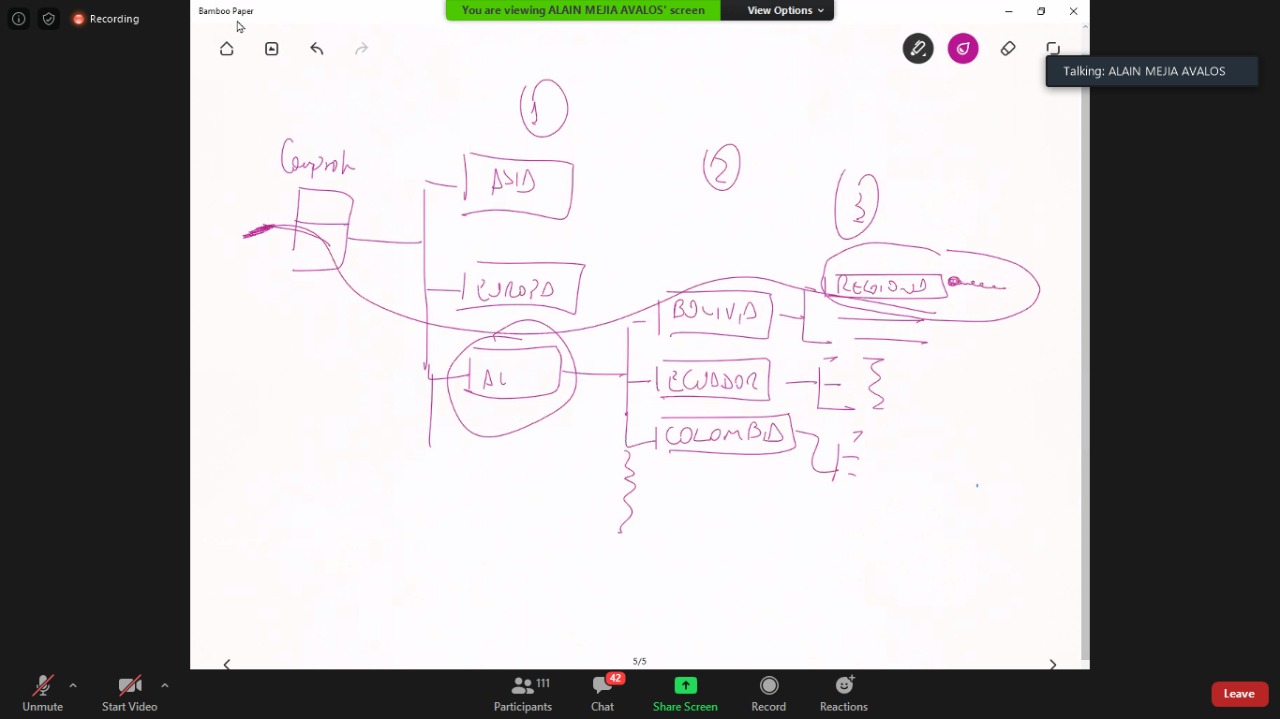 Recording
Bamboo Paper
You are viewing ALAIN MEJIA AVALOS' screen
View Options
Talking: ALAIN MEJIA AVALOS
1
2
3
ASIA
EUROPA
AL
BOLIVIA
ECUADOR
COLOMBIA
REGIONA
5/5
Unmute
Start Video
111
Participants
42
Chat
Share Screen
Record
Reactions
Leave